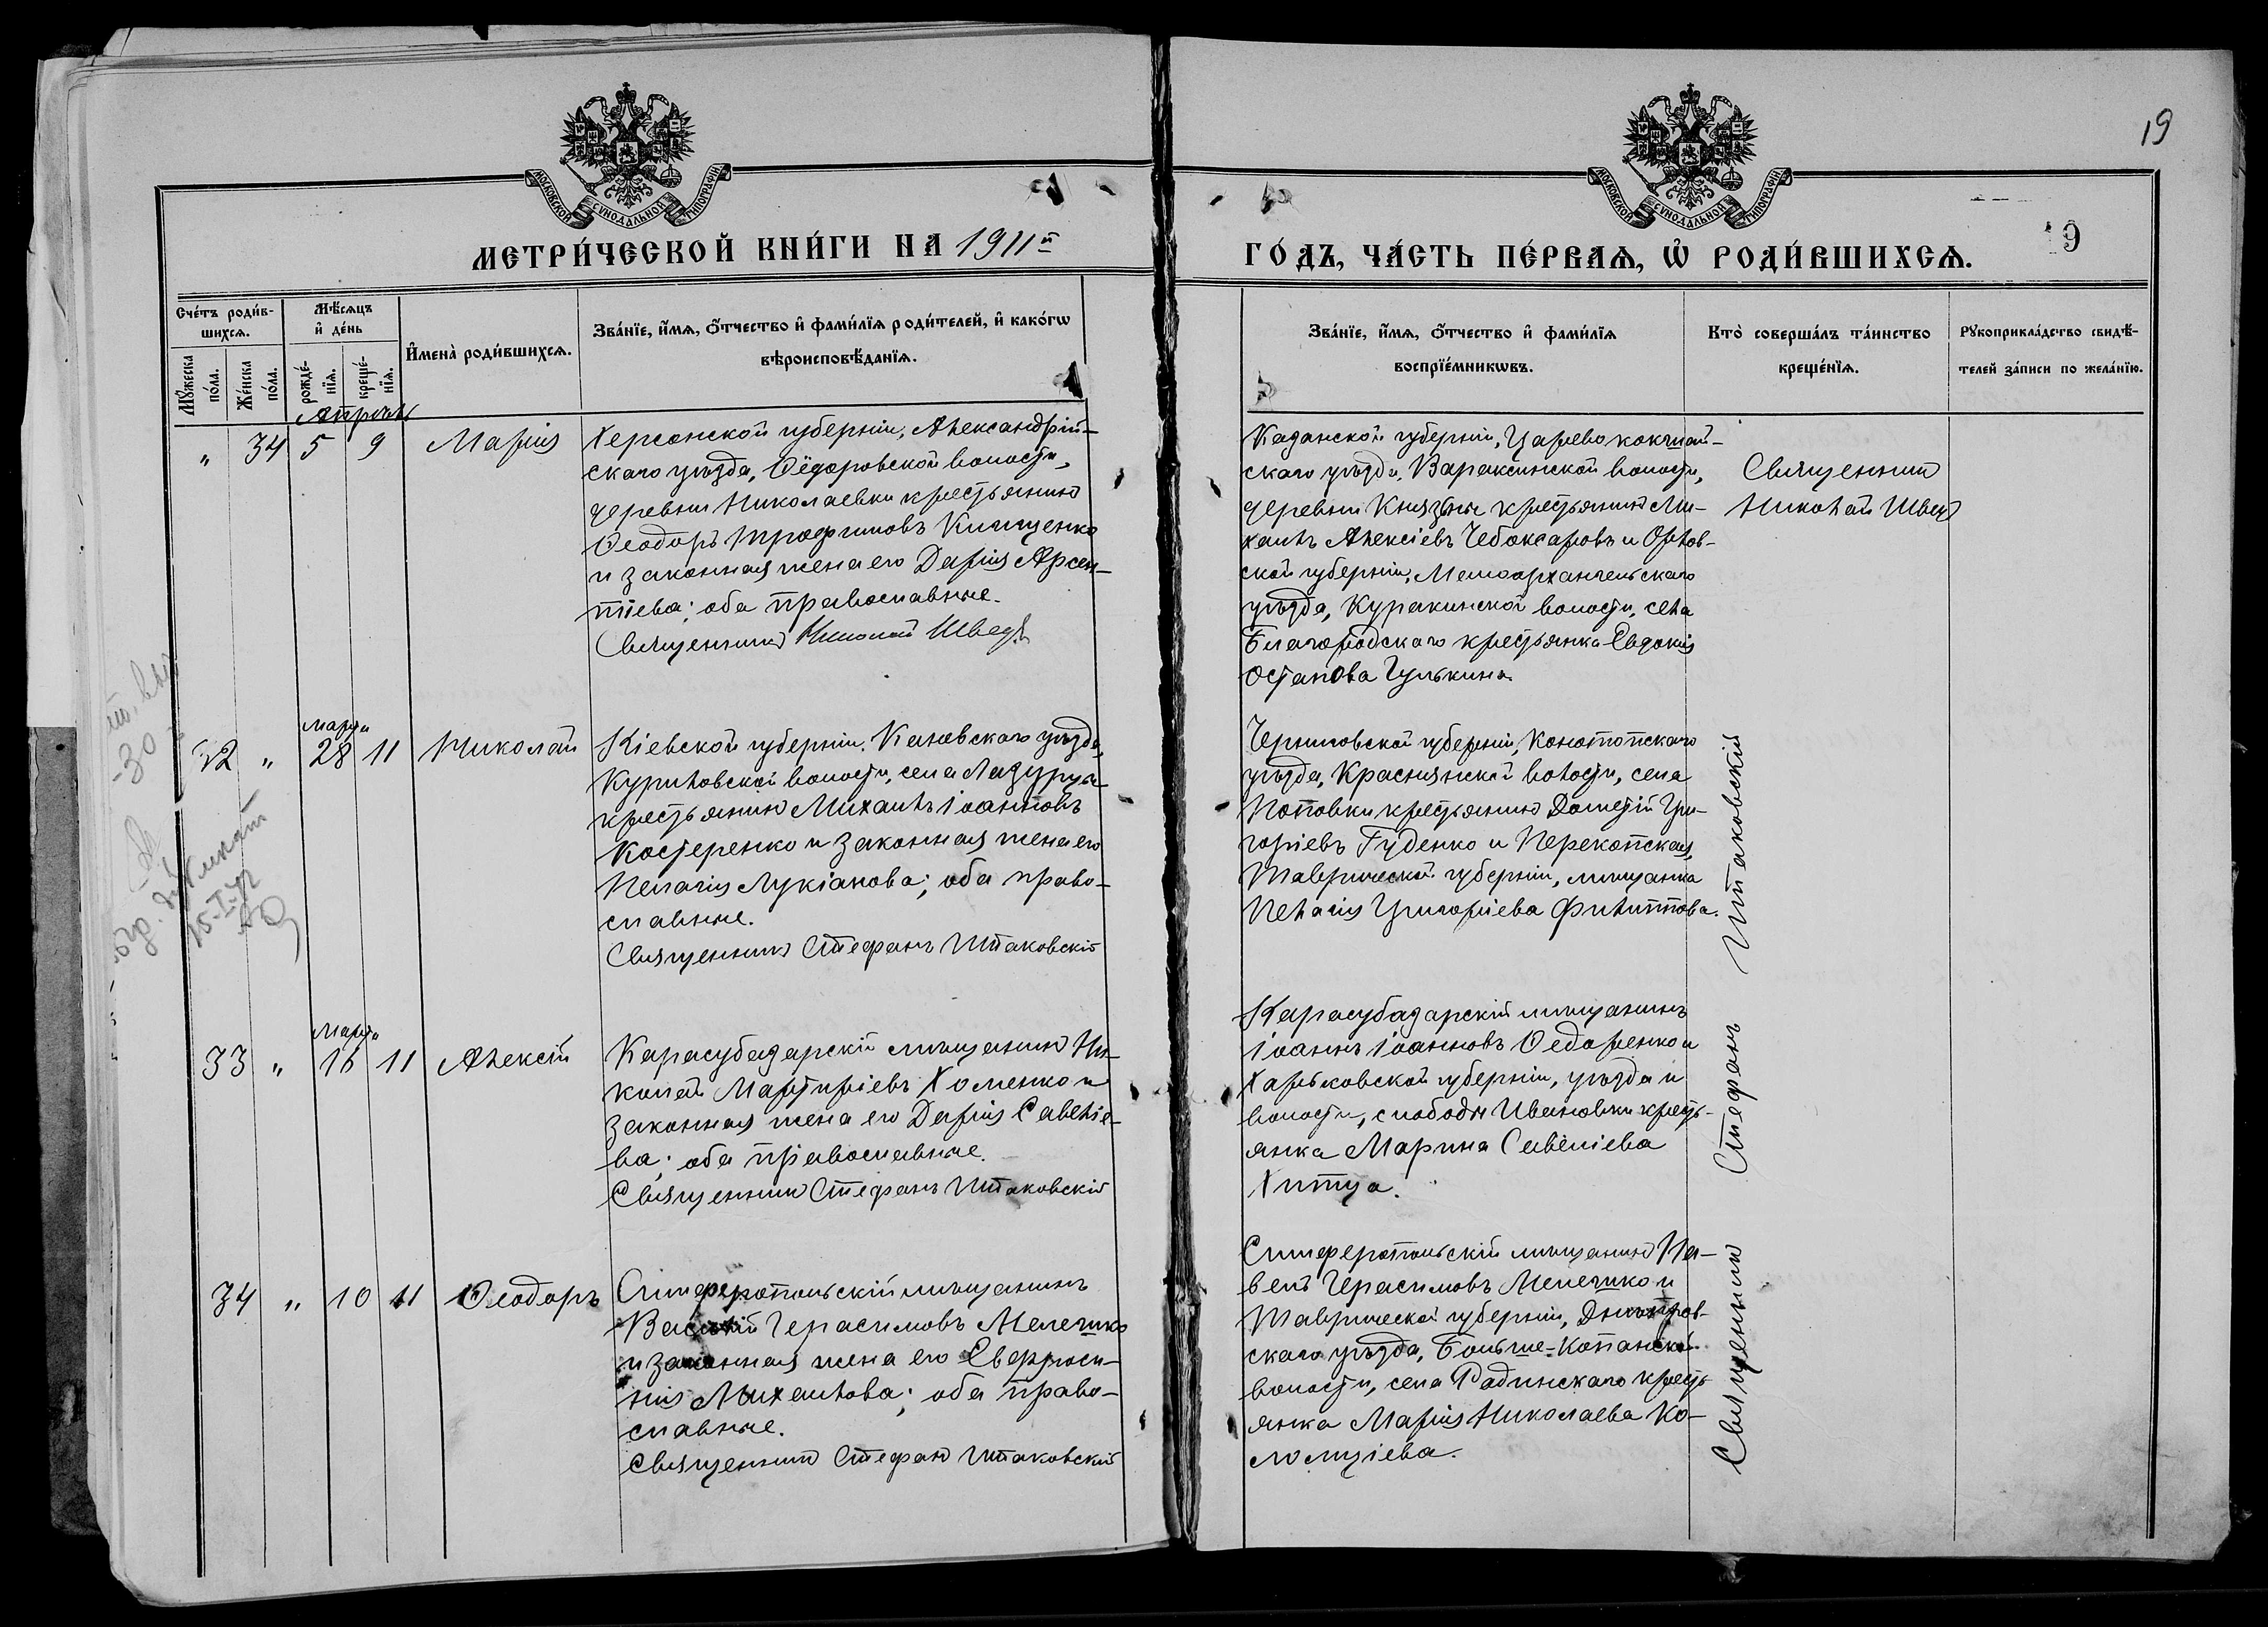 19
МОСКОВСКОЙ СУНОДАЛЬНОЙ ТИПОГРАФІИ
МОСКОВСКОЙ СУНОДАЛЬНОЙ ТИПОГРАФІИ
МЕТРИ́ЧЕСКОЙ КНИ́ГИ НА 1911й
ГО́ДЪ, ЧА́СТЬ ПЕ́РВАѦ, Ѡ҆ РОДИ́ВШИХСѦ.
9
Сче́тъ роди́в-
шихсѧ.
Мꙋ́жеска по́ла.
Же́нска по́ла.
Мѣ́сѧцъ
и҆ де́нь
рожде́-
нїѧ.
креще́-
нїѧ.
И҆мена̀ роди́вшихсѧ.
Зва́нїе, и҆́мѧ, ѻ҆́тчество и҆ фами́лїѧ роди́телей, и҆ како́гѡ
вѣроисповѣ́данїѧ.
Зва́нїе, и҆́мѧ, ѻ҆́тчество и҆ фами́лїѧ
воспрїе́мникѡвъ.
Кто̀ соверша́лъ та́инство
креще́нїѧ.
Рꙋкоприкла́дство свидѣ́-
телей за́писи по жела́нїю.
Апрѣль
" 34 5 9 Марія
Херсонской губерніи, Александрій-
скаго уѣзда, Ѳёдоровской волости,
деревни Николаевки крестьянинъ
Ѳеодоръ Трофимовъ Кищенко
и законная жена его Дарія Арсен-
тіева; оба православные.
Священникъ Николай Шведъ
Казанской губерніи, Царевококшай-
скаго уѣзда, Вараксинской волости,
деревни Княз крестьянинъ Ми-
хаилъ Алексіевъ Чебоксаровъ и Орлов-
ской губерніи, Малоархангельскаго
уѣзда, Куракинской волости, села
Благородскаго крестьянка Евдокія
Остапова Гулькина.
Священникъ
Николай Шведъ
Марта
32 " 28 11 Николай
Кіевской губерніи, Каневскаго уѣзда,
Куриловской волости, села Лазурца
крестьянинъ Михаилъ Іоанновъ
Костеренко и законная жена его
Пелагія Лукіанова; оба право-
славные.
Священникъ Стефанъ Итаковскій
Черниговской губерніи, Конотопскаго
уѣзда, Краснянской волости, села
Поповки крестьянинъ Дометій Гри-
горіевъ Гуденко и Перекопская,
Таврической губерніи, мѣщанка
Пелагія Григоріева Филиппова.
Марта
33 " 16 11 Алексій
Карасубазарскій мѣщанинъ Ни-
колай Мартиріевъ Хоменко и
законная жена его Дарія Савеліе-
ва; оба православные.
Священникъ Стефанъ Итаковскій
Карасубазарскій мѣщанинъ
Іоаннъ Іоанновъ Ѳедоренко и
Харьковской губерніи, уѣзда и
волости, слободы Ивановки кресть-
янка Марина Савеліева
34 " 10 11 Ѳеодоръ
Симферопольскій мѣщанинъ
Василій Герасимовъ Мелешко
и законная жена его Евфроси-
нія Михаилова; оба право-
славные.
Священникъ Стефанъ Итаковскій
Симферопольскій мѣщанинъ Па-
велъ Герасимовъ Мелешко и
Таврической губерніи, Днѣпров-
скаго уѣзда, Больше-Копанской
волости, села Радинскаго кресть-
янка Марія Николаева Ко-
ломціева.
Священникъ Стефанъ Итаковскій
-30-
дубликат
15-I-42